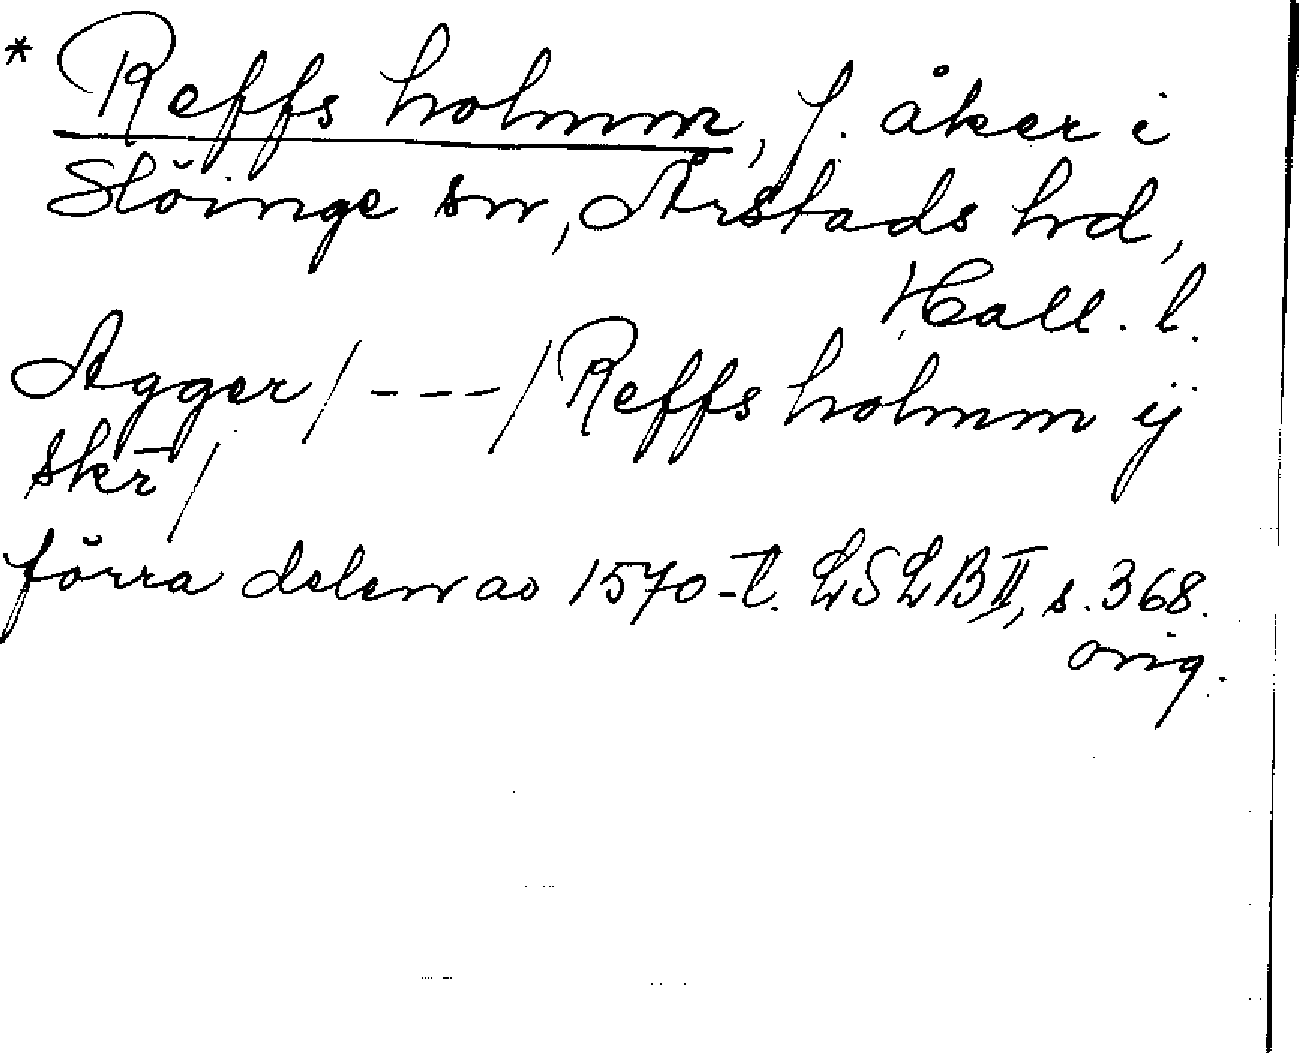 * Reffs holmm, f. åker i
Slöinge sn, Årstads hd,
Hall. l.
Agger / - - - / Reffs holmm ij
skr̄ /
förra delen av 1570-t. LSLB II, s. 368.
orig.